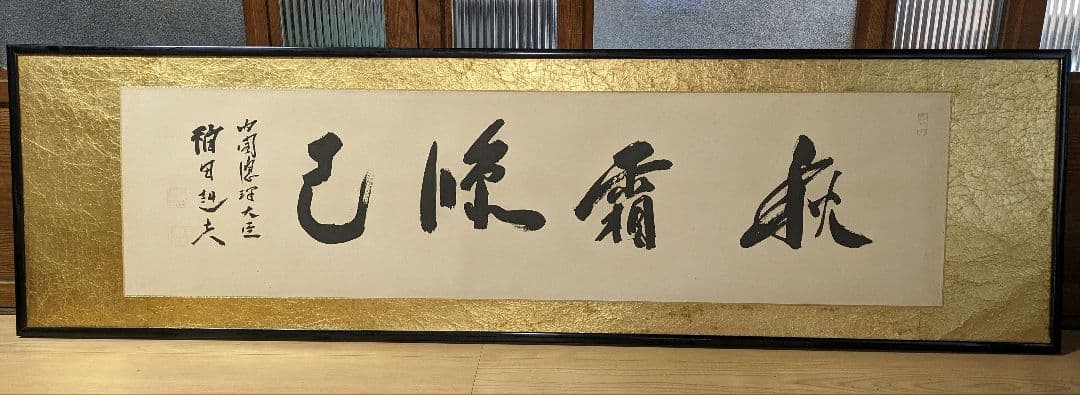 秋霜臨己
内閣總理大臣
福田赳夫